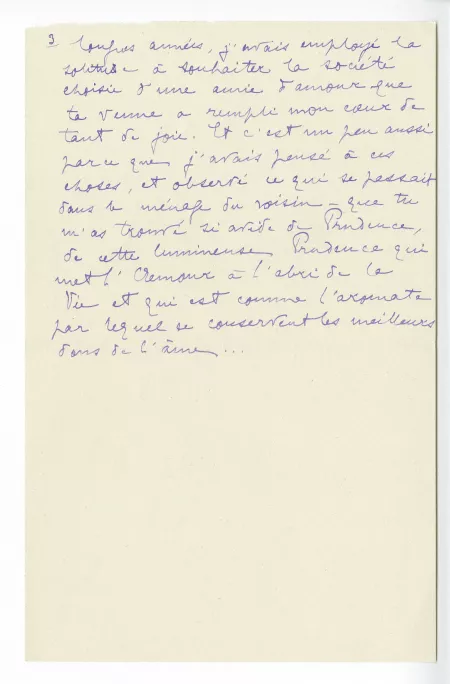 3 longues années, j'avais employé la
solitude à souhaiter la société
choisie d'une amie d'amour que
ta venue a rempli mon cœur de
tant de joie. Et c'est un peu aussi
parce que j'avais pensé à ces
choses, et observé ce qui se passait
dans le ménage du voisin - que tu
m'as trouvé si avide de Prudence,
de cette lumineuse Prudence qui
met l'Amour à l'abri de la
Vie et qui est comme l'aromate
par lequel se conservent les meilleurs
dons de l'âme...